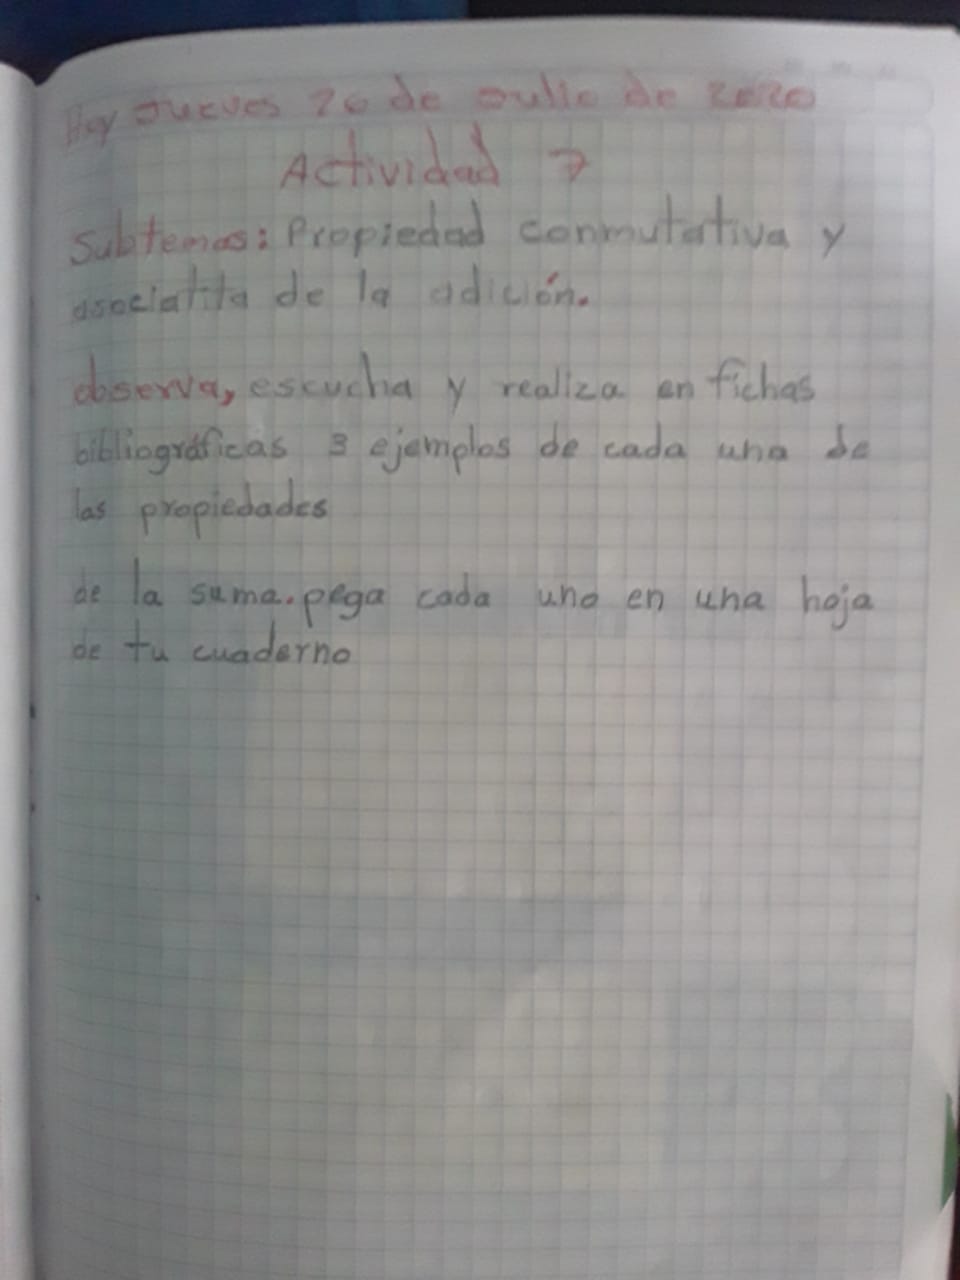 Hoy Jueves 26 de Julio de 2020
Actividad 7
Subtemas: Propiedad conmutativa y
asociatita de la adición.
observa, escucha y realiza en fichas
bibliográficas 3 ejemplos de cada una de
las propiedades
de la suma. pega cada uno en una hoja
de tu cuaderno